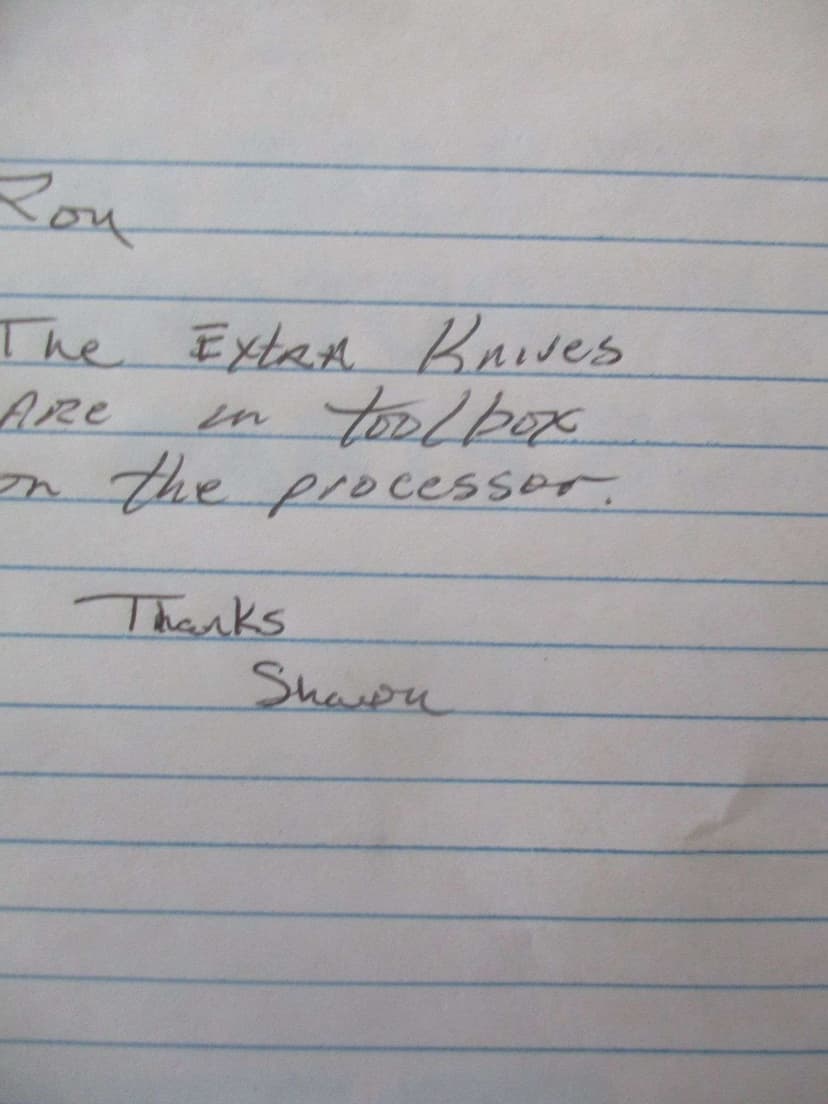 Ron
The Extra Knives
Are in toolbox
on the processor.
Thanks
Shawn